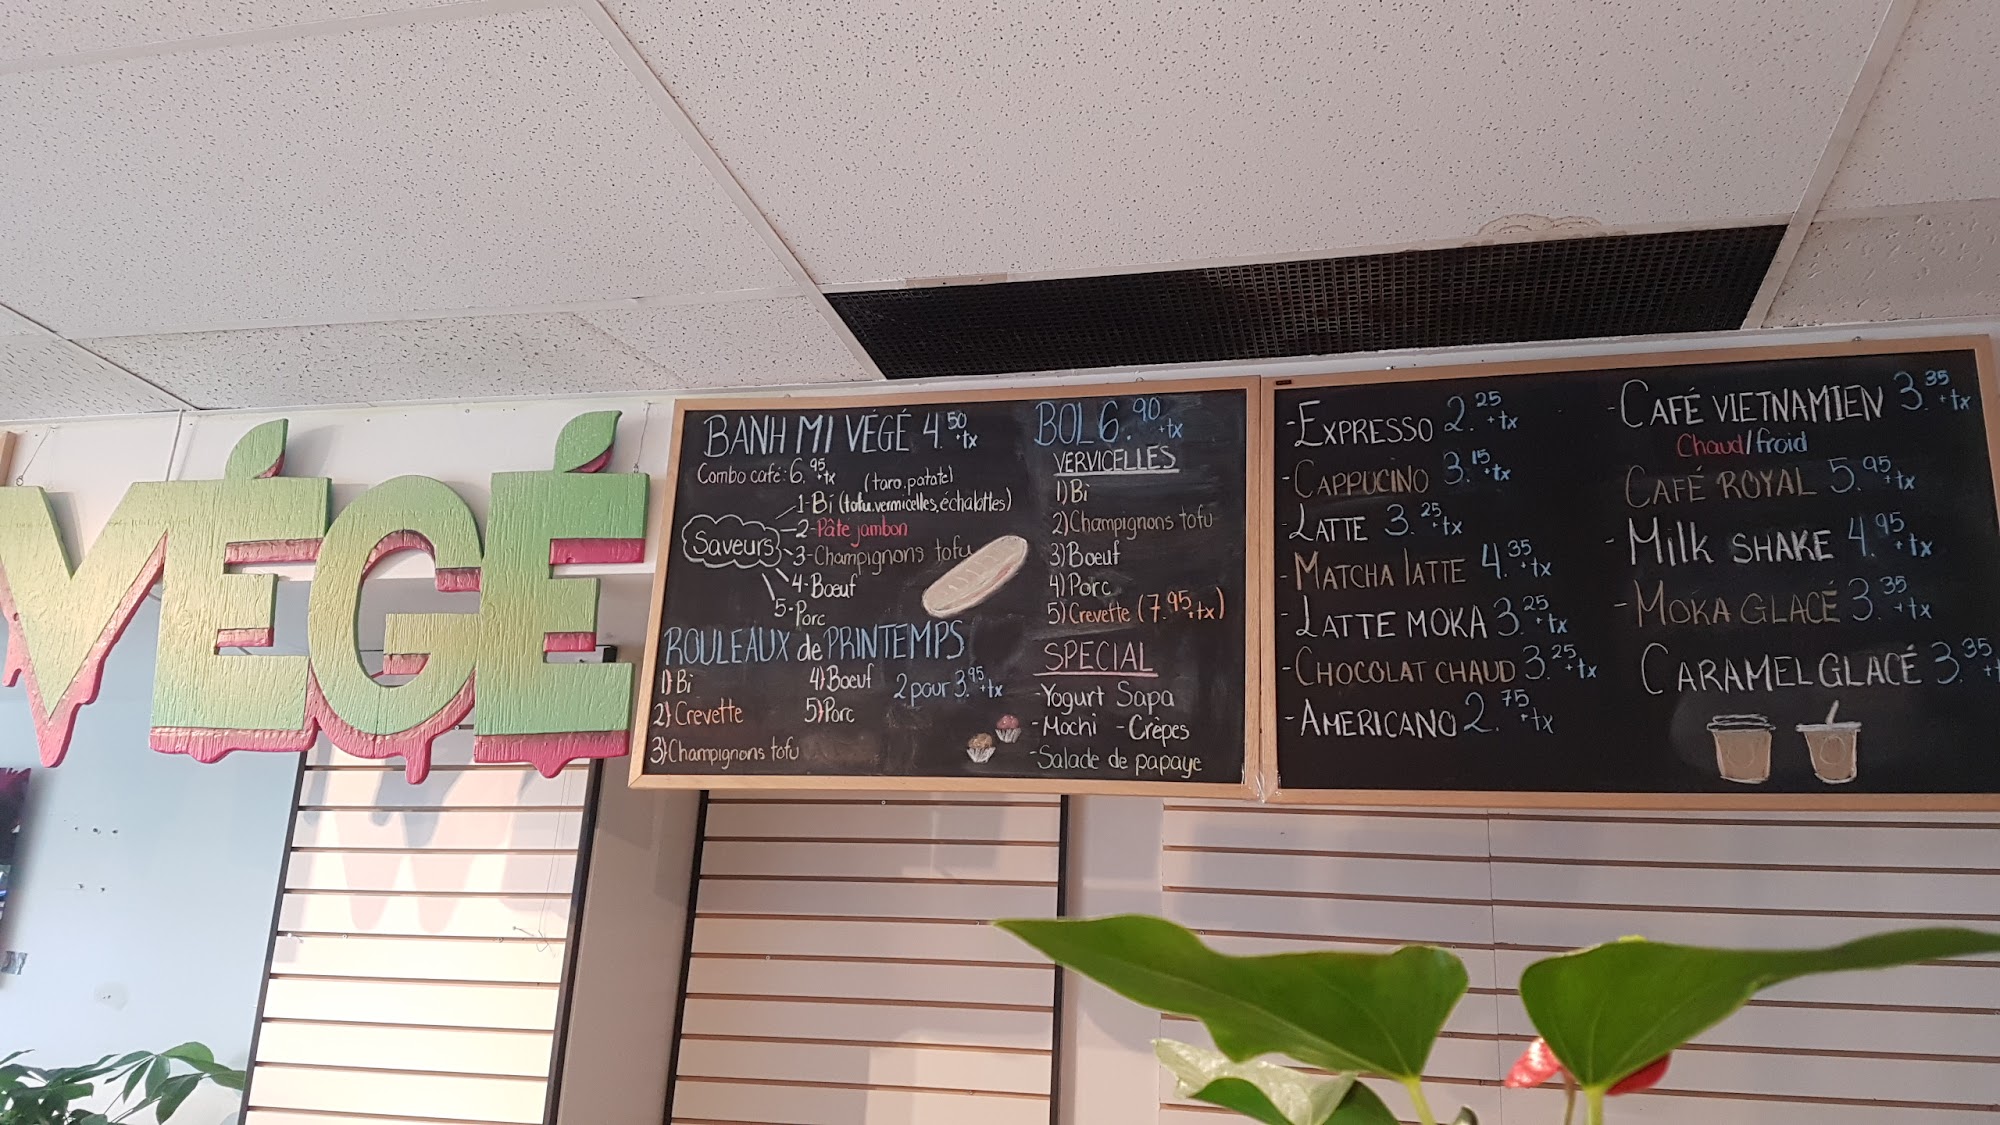 VÉGÉ
BANH MI VÉGÉ 4.50+tx
Combo café: 6.95+tx
(taro, patate)
1-Bi (tofu, vermicelles, échalottes)
Saveurs
2-Pâte jambon
3-Champignons tofu
4-Boeuf
5-Porc
ROULEAUX de PRINTEMPS
1) Bi
2) Crevette
3) Champignons tofu
4) Boeuf
5) Porc
2 pour 3.95+tx
BOL 6.90+tx
VERVICELLES
1) Bi
2) Champignons tofu
3) Boeuf
4) Porc
5) Crevette (7.95+tx)
SPECIAL
-Yogurt Sapa
-Mochi -Crèpes
-Salade de papaye
-EXPRESSO 2.25+tx
-CAPPUCINO 3.15+tx
-LATTE 3.25+tx
-MATCHA LATTE 4.35+tx
-LATTE MOKA 3.25+tx
-CHOCOLAT CHAUD 3.25+tx
-AMERICANO 2.75+tx
-CAFÉ VIETNAMIEN 3.35+tx
Chaud/froid
CAFÉ ROYAL 5.95+tx
-Milk SHAKE 4.95+tx
-MOKA GLACÉ 3.35+tx
CARAMEL GLACÉ 3.35+t